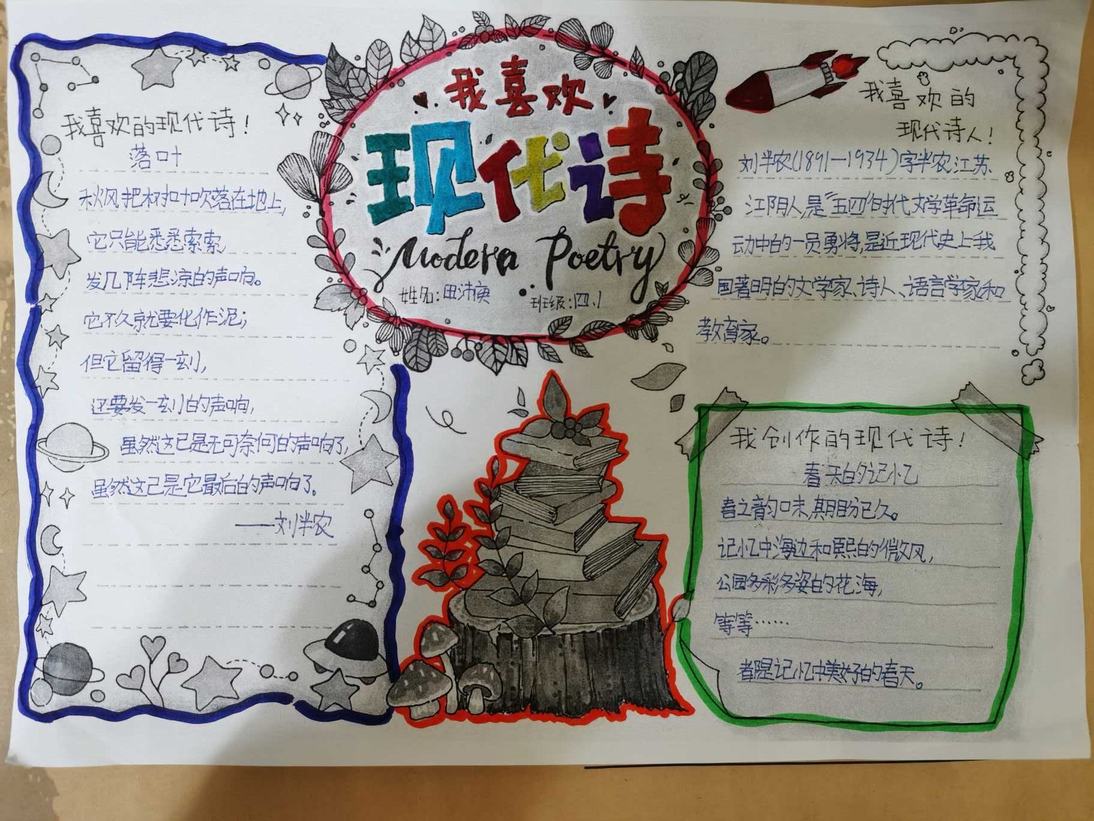 我喜欢
现代诗
Modern Poetry
姓名:田沛
班级:四.1
我喜欢的现代诗!
落叶
秋风把树叶吹落在地上,
它只能悉悉索索,
发几阵悲凉的声响。
它不久就要化作泥;
但它留得一刻,
还要发一刻的声响,
虽然这已是无可奈何的声响了,
虽然这已是它最后的声响了。
——刘半农
我喜欢的
现代诗人!
刘半农(1891—1934)字半农,江苏
江阴人,是“五四”时代文学革命运
动中的一员勇将,是近现代史上我
国著明的文学家、诗人、语言学家和
教育家。
我创作的现代诗!
春天的记忆
春之音的口味,期盼已久。
记忆中海边和熙的微风,
公园多彩多姿的花海,
等等……
都是记忆中美好的春天。